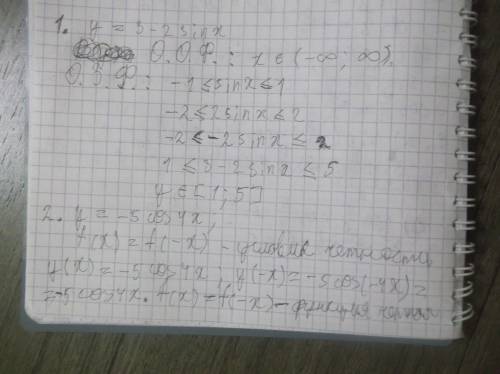 1. y = 3 - 2 sin x
О.О.Ф.: x ∈ (-∞; ∞).
О.З.Ф.: -1 ≤ sin x ≤ 1
-2 ≤ 2 sin x ≤ 2
-2 ≤ -2 sin x ≤ 2
1 ≤ 3 - 2 sin x ≤ 5
y ∈ [1; 5]
2. y = -5 cos 4x;
f(x) = f(-x) - условие четность
y(x) = -5 cos 4x; y(-x) = -5 cos(-4x) =
= -5 cos 4x. f(x) = f(-x) - функция четная